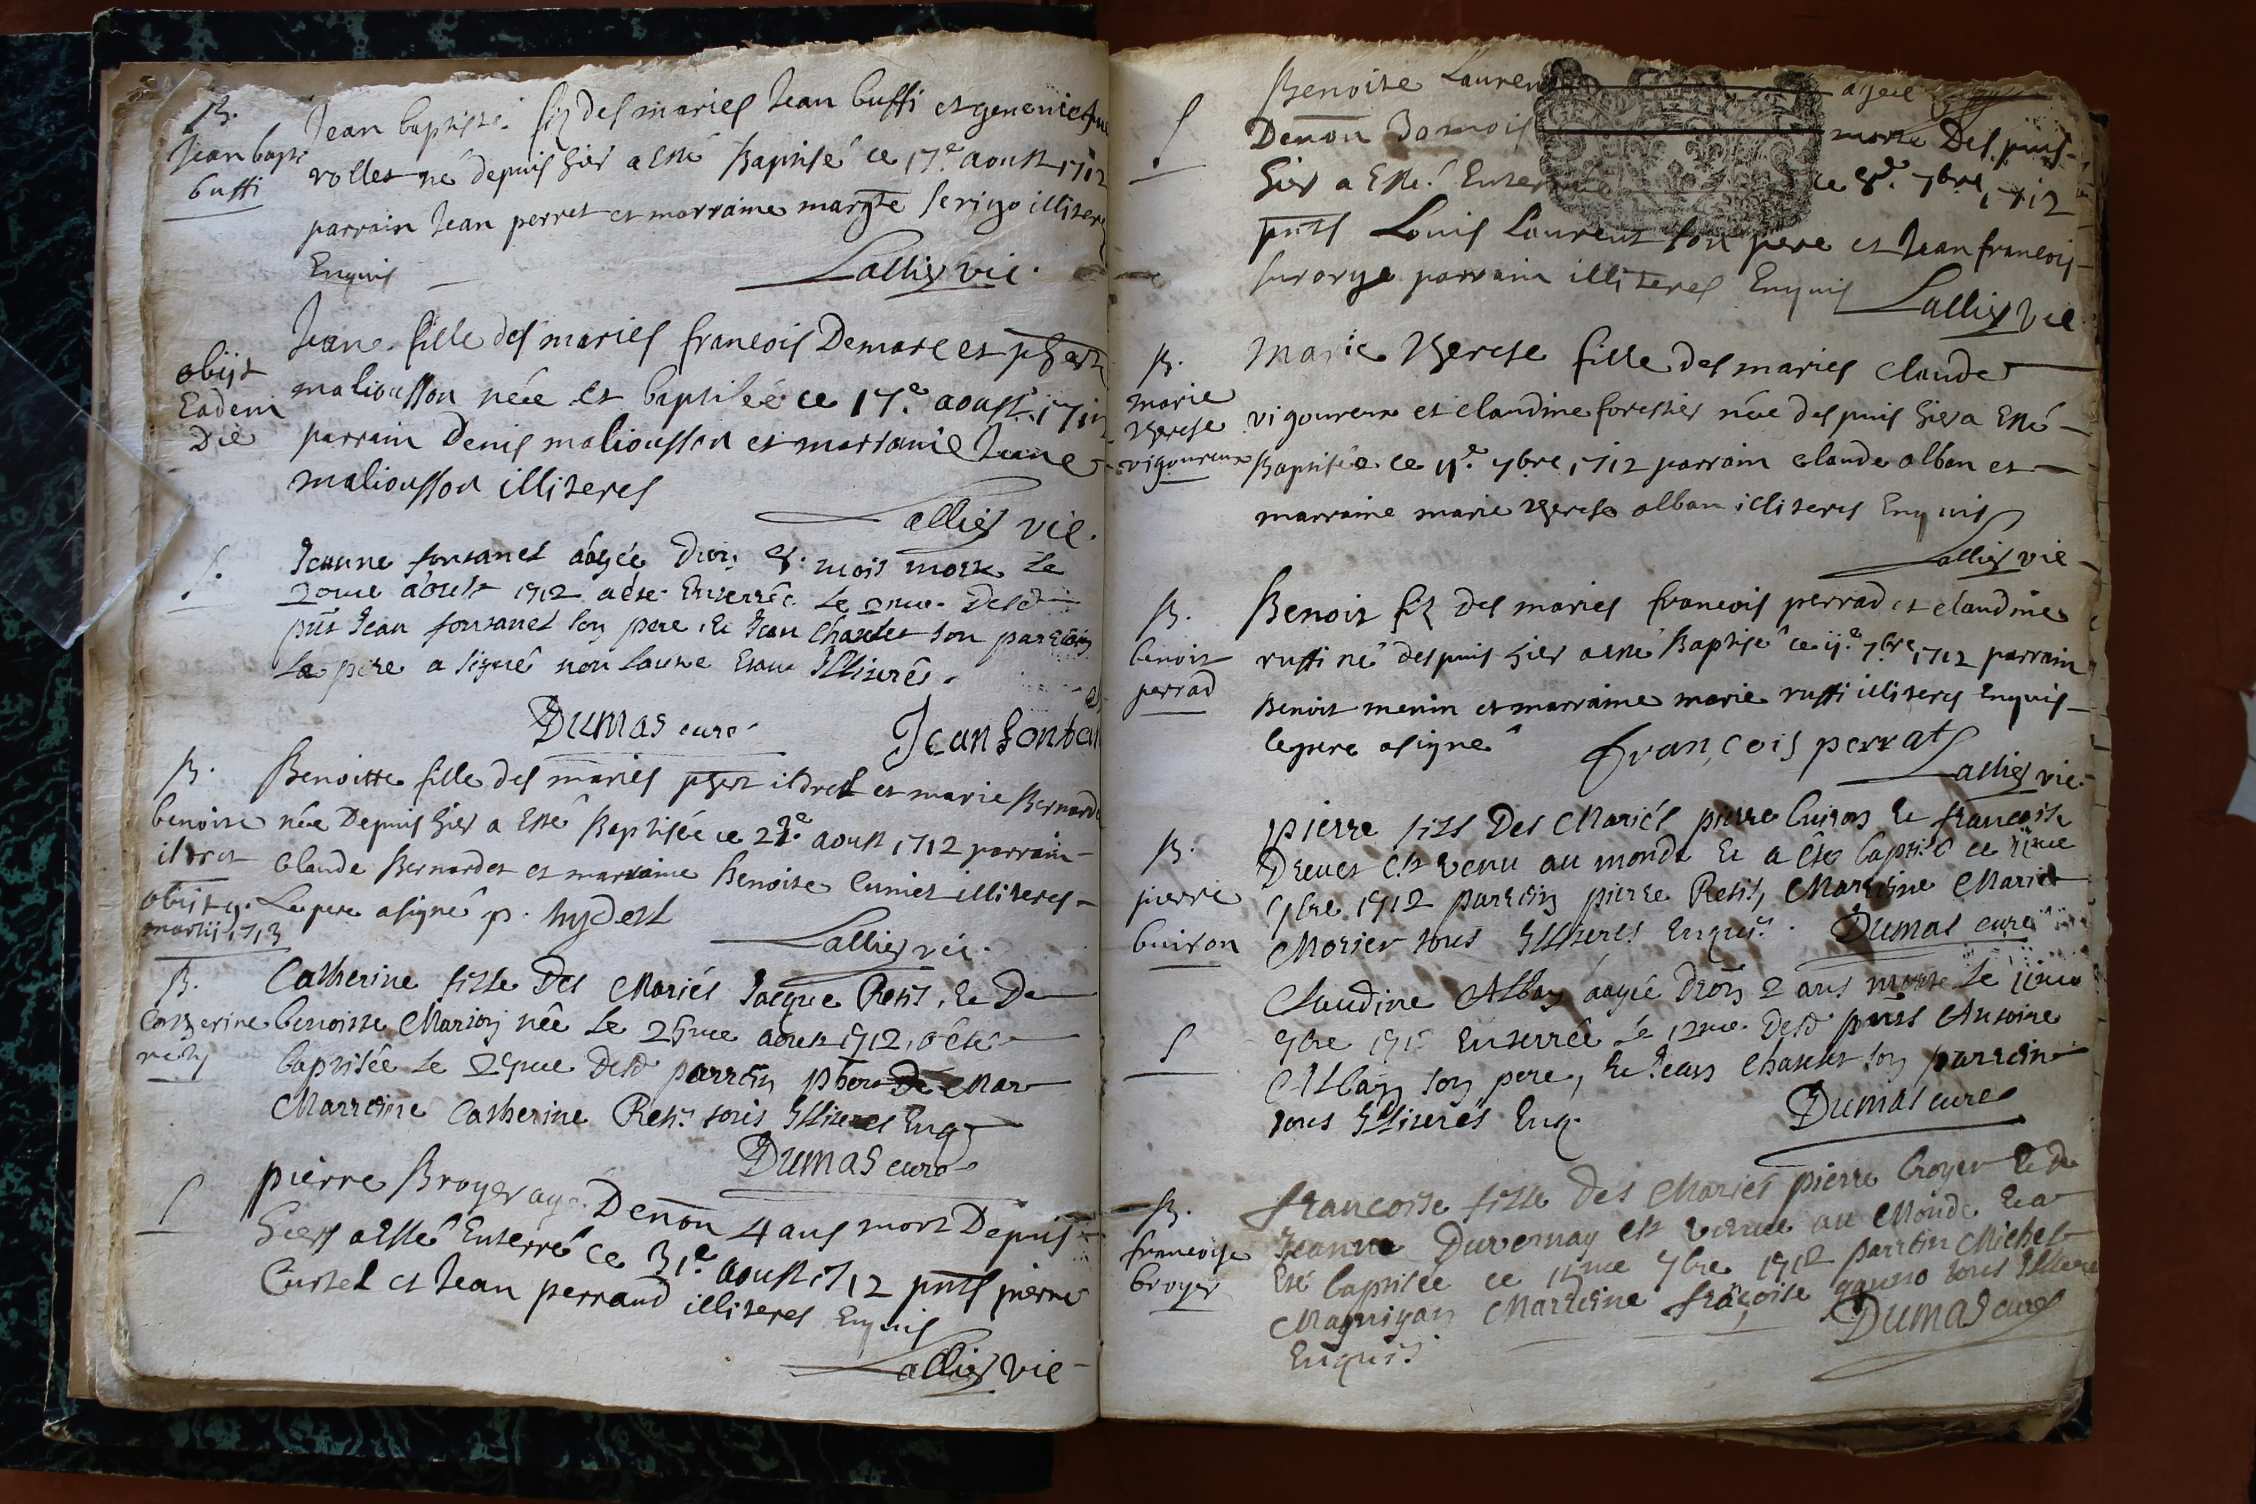 B.
Jean bapt
buffi
Jean baptiste fiz des mariés Jean buffi et genevieve
rollet né depuis hier a esté Baptisé ce 17.e aoust 1712
parrain Jean perret et marraine margte illiteres
Enquis
Lallier vic.
obijt
Eadem
Die
Jeane fille des mariés francois Demare et
maliousson née et baptisée ce 17.e aoust 1712
parrain Denis maliousson et marraine Jeane
maliousson illiteres
Lallier vic.
S.
Jeanne fontanel aagée d'env. 8 mois morte le
20me aoust 1712 a été Enterrée le
pnt Jean fontanel son pere, et Jean Chastet son parrein
le pere a signé non l'autre illiteré.
Dumas curé
Jean fontan
B.
benoite
obijt 9.
martij 1713
Benoitte fille des mariés et marie Bernarde
née Depuis hier a esté Baptisée ce aoust 1712 parrain
Claude Bernardet et marraine Benoite illiteres
Le pere a signé p. hydest
Lallier vic.
B.
Catherine
Catherine fille des Mariés Jacque Retit, et De
benoitte Marion née le aoust 1712, a été
baptisée le dud parrein
Marreine Catherine tous Illiteres Enq
Dumas curé
S
pierre Broyer agé Denon 4 ans mort Depuis
hier a esté Enterré ce 31.e aoust 1712 pnts pierre
Curtel et Jean perraud illiteres Enquis
Lallier vic
S
Benoite Laurent agée
Denon 30 mois morte Despuis
hier a esté Enterrée ce 8.e 7bre 1712
pnts Louis Laurent son pere et Jean francois
parrain illiteres Enquis
Lallier vic
B.
marie
therese
vigoureux
Marie therese fille des mariés claude
vigoureux et claudine forestier née despuis hier a esté
Baptisée ce 7bre 1712 parrain claude alban et
marraine marie therese alban illiteres Enquis
Lallier vic
B.
benoit
perrad
Benoit fiz des mariés francois perrad et claudine
ruffi né despuis hier a esté Baptisé ce 7bre 1712 parrain
Benoit menin et marraine marie ruffi illiteres Enquis
le pere a signé
françois perrat
Lallier vic.
B.
pierre
buiron
pierre fils Des Mariés pierre buiron et francoise
Drevet est venu au monde et a été baptisé ce 11me
7bre 1712 parrein pierre Retit, Marreine Marie
Morier tous Illiteres Enquis.
Dumas curé
S
Claudine Alban aagée d'env 2 ans morte le 11me
7bre 1712 Enterrée le 12me dud pnts Antoine
Alban son pere, et Jean Chastet son parrein
tous Illiterés Enq.
Dumas curé
B.
francoise
broyer
francoise fille Des Mariés pierre broyer et de
Jeanne Duvernay est venue au Monde et a
Eté baptisée ce 7bre 1712 parrein Michel
Magnigan Marreine frãçoise tous Illiteré
Enquis
Dumas curé